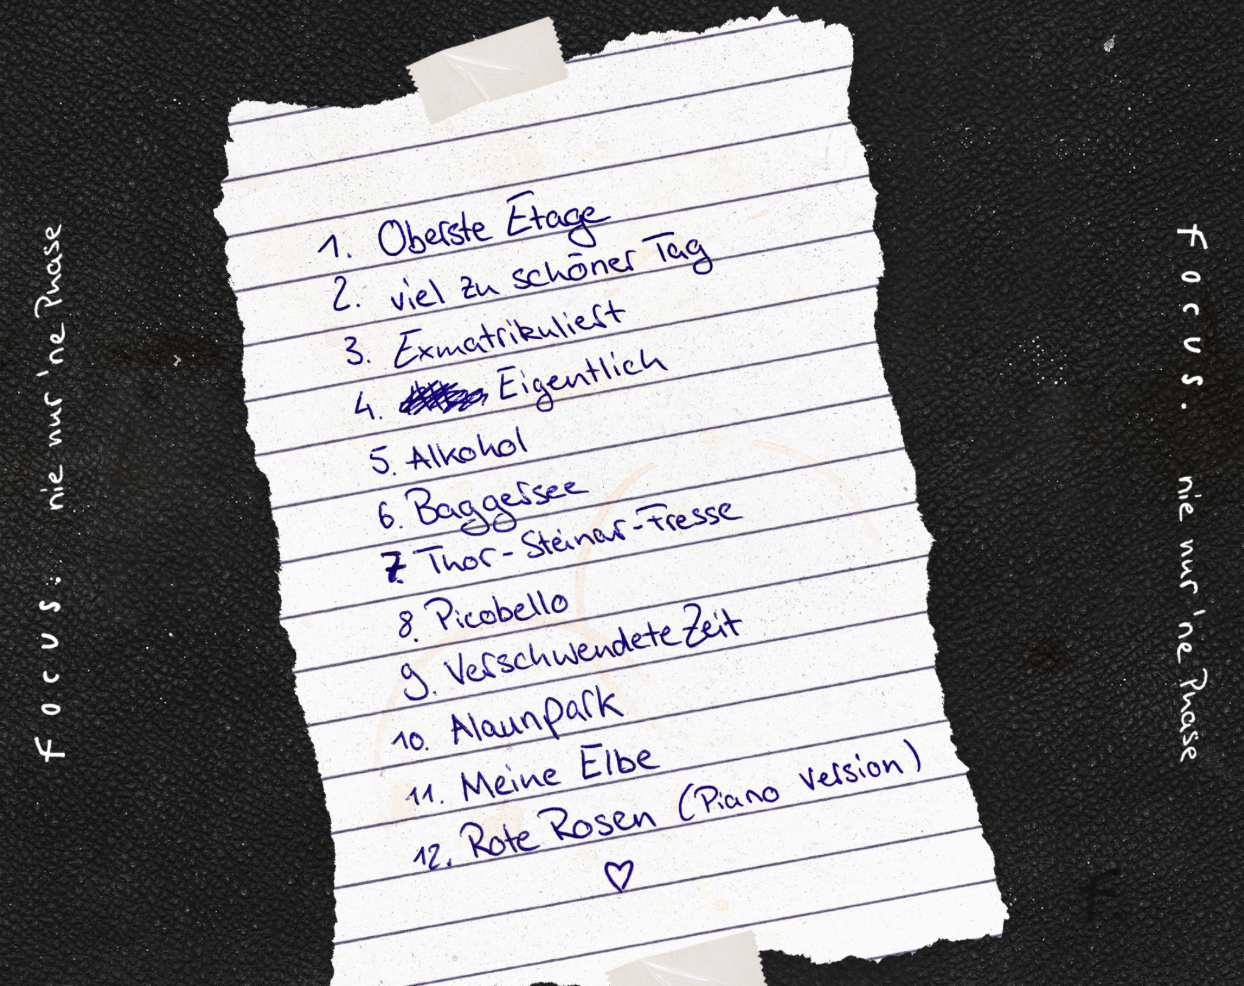 focus. nie nur 'ne Phase
1. Oberste Etage
2. viel zu schöner Tag
3. Exmatrikuliert
4. Eigentlich
5. Alkohol
6. Baggersee
7. Thor-Steinar-Fresse
8. Picobello
9. Verschwendete Zeit
10. Alaunpark
11. Meine Elbe
12. Rote Rosen (Piano Version)
♡
focus. nie nur 'ne Phase